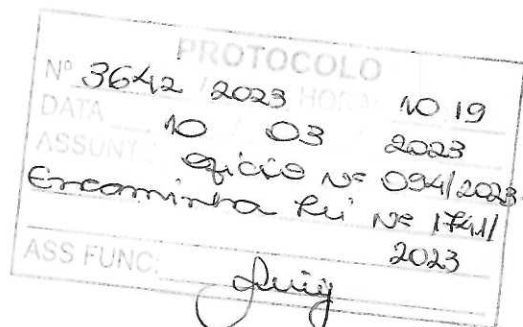 PROTOCOLO
Nº 3642 / 2023 HORA: 10 19
DATA 10 03 2023
ASSUNT.: Oficio Nº 094/2023.
Encaminha Lei Nº 1741/
2023
ASS FUNC: